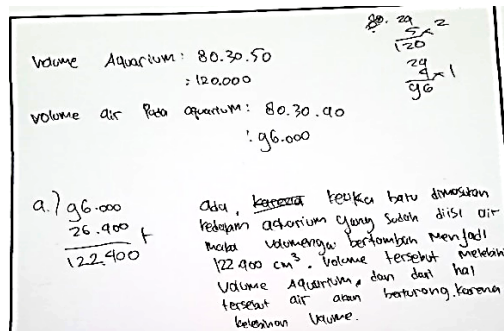 Volume Aquarium : 80.30.50
: 120.000
volume air Pada aquarium : 80.30.40
: 96.000
80. 24
5 x 2
120
24
4 x 1
96
a.) 96.000
26.400 +
122.400
ada, karena ketika batu dimasukan
kedalam aquarium yang sudah diisi air
maka volumenya bertambah menjadi
122.400 cm³. Volume tersebut melebihi
Volume Aquarium, dan dari hal
tersebut air akan
karena
kelebihan Volume.